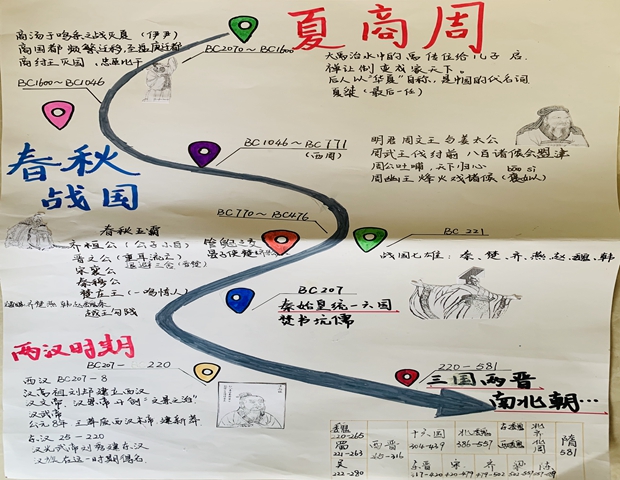 夏商周
商汤于鸣条之战灭夏 (伊尹)
商国都频繁迁移,至盘庚迁都
商纣王灭国、忠臣比干
BC2070~BC1600
大禹治水中的禹传位给儿子启.
禅让制变成家天下。
后人以"华夏"自称,是中国的代名词
夏桀(最后一任)
BC1600~BC1046
BC1046~BC771
(西周)
明君周文王与姜太公
周武王伐纣前八百诸侯会盟津
周公吐哺,天下归心
bāo sì
周幽王烽火戏诸侯(褒姒)
春秋
战国
BC770~BC476
BC 221
春秋五霸
齐桓公(公子小白)
管鲍之交
晋文公(重耳流亡)
退避三舍(晋楚)
宋襄公
秦穆公
楚庄王(一鸣惊人)
越王勾践
战国七雄:秦、楚、齐、燕、赵、魏、韩
BC207
秦始皇统一六国
焚书坑儒
两汉时期
BC207- 220
西汉 BC207-8
汉高祖刘邦建立西汉
汉文帝、汉景帝开创"文景之治"
汉武帝
公元8年 王莽废西汉末帝,建新莽
东汉 25-220
汉光武帝刘秀建东汉
220-581
三国两晋
南北朝…
曹魏
220-265
蜀
221-263
吴
222-280
西晋
265-316
十六国
304-439
北魏
386-557
东魏
西魏
北齐
北周
隋
581
东晋 宋 齐 梁 陈
317-420 420-479 479-502